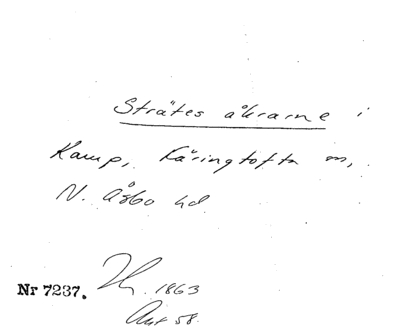 Strätes åkrarne i
Kamp, Käringtofta m,
N. Åsbo hd.
Nr 7237. 1863
Akt 58.